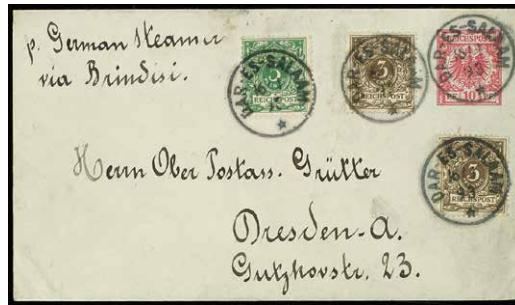 p. German Steamer
via Brindisi.
5
REICHSPOST
DAR-ES-SALAAM
3
REICHSPOST
DAR-ES-SALAAM
REICHSPOST
PF. 10 PF.
DAR-ES-SALAAM
3
REICHSPOST
DAR-ES-SALAAM
Herrn Ober Postass. Grütter
Dresden-A.
Gutzkovstr. 23.